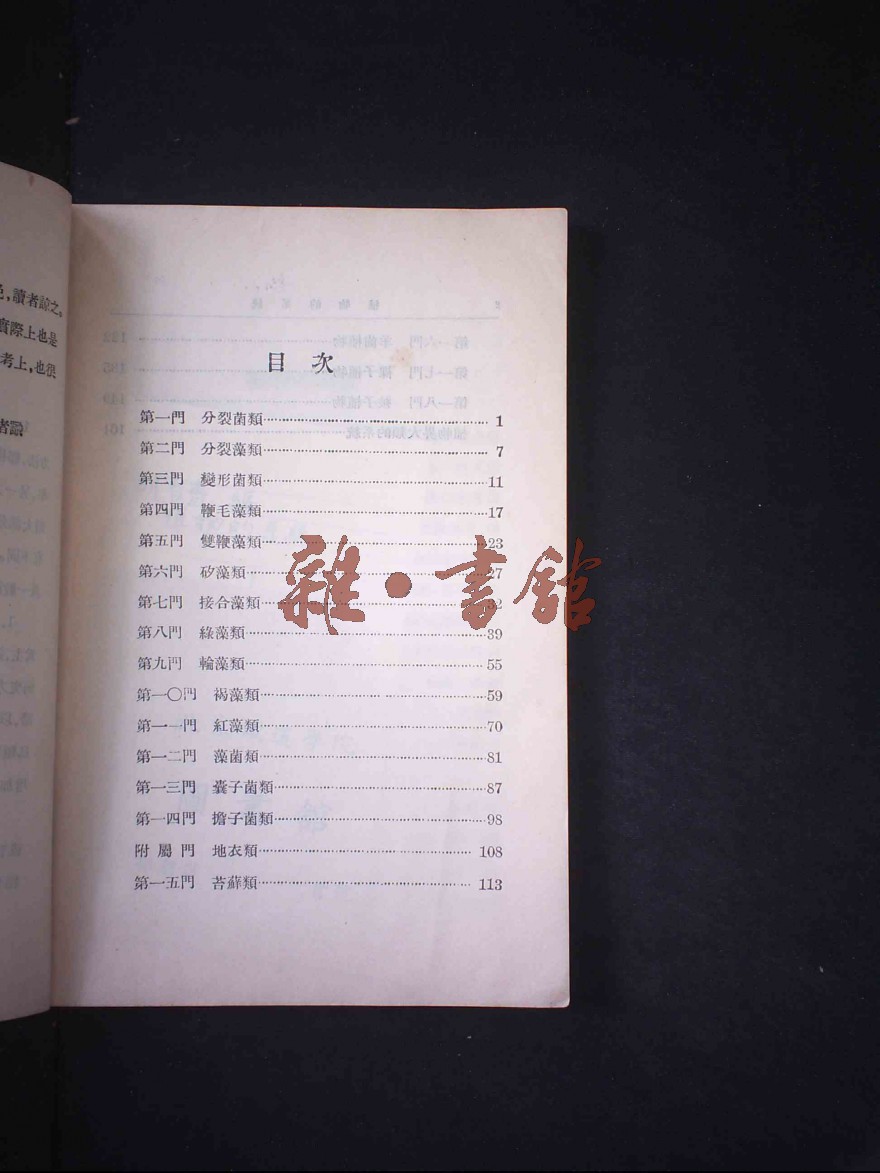 色,讀者諒之。
實際上也是
考上,也很
者識
目次
第一門 分裂菌類 1
第二門 分裂藻類 7
第三門 變形菌類 11
第四門 鞭毛藻類 17
第五門 雙鞭藻類 23
第六門 矽藻類 27
第七門 接合藻類 32
第八門 綠藻類 39
第九門 輪藻類 55
第一〇門 褐藻類 59
第一一門 紅藻類 70
第一二門 藻菌類 81
第一三門 囊子菌類 87
第一四門 擔子菌類 98
附屬門 地衣類 108
第一五門 苔蘚類 113
雜·書館